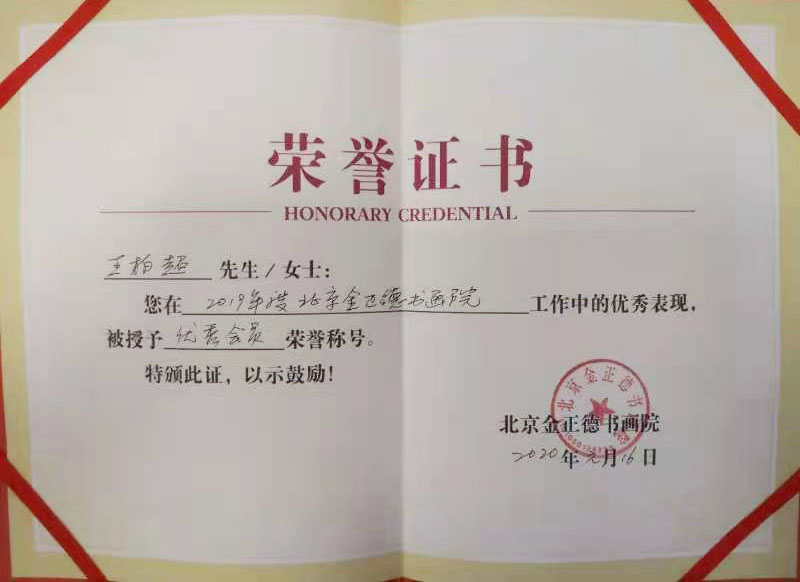 荣誉证书
HONORARY CREDENTIAL
王柏超 先生/女士：
您在 2019年度北京金正德书画院 工作中的优秀表现，
被授予 优秀会员 荣誉称号。
特颁此证，以示鼓励！
北京金正德书画院
北京金正德书画院
2020年元月16日